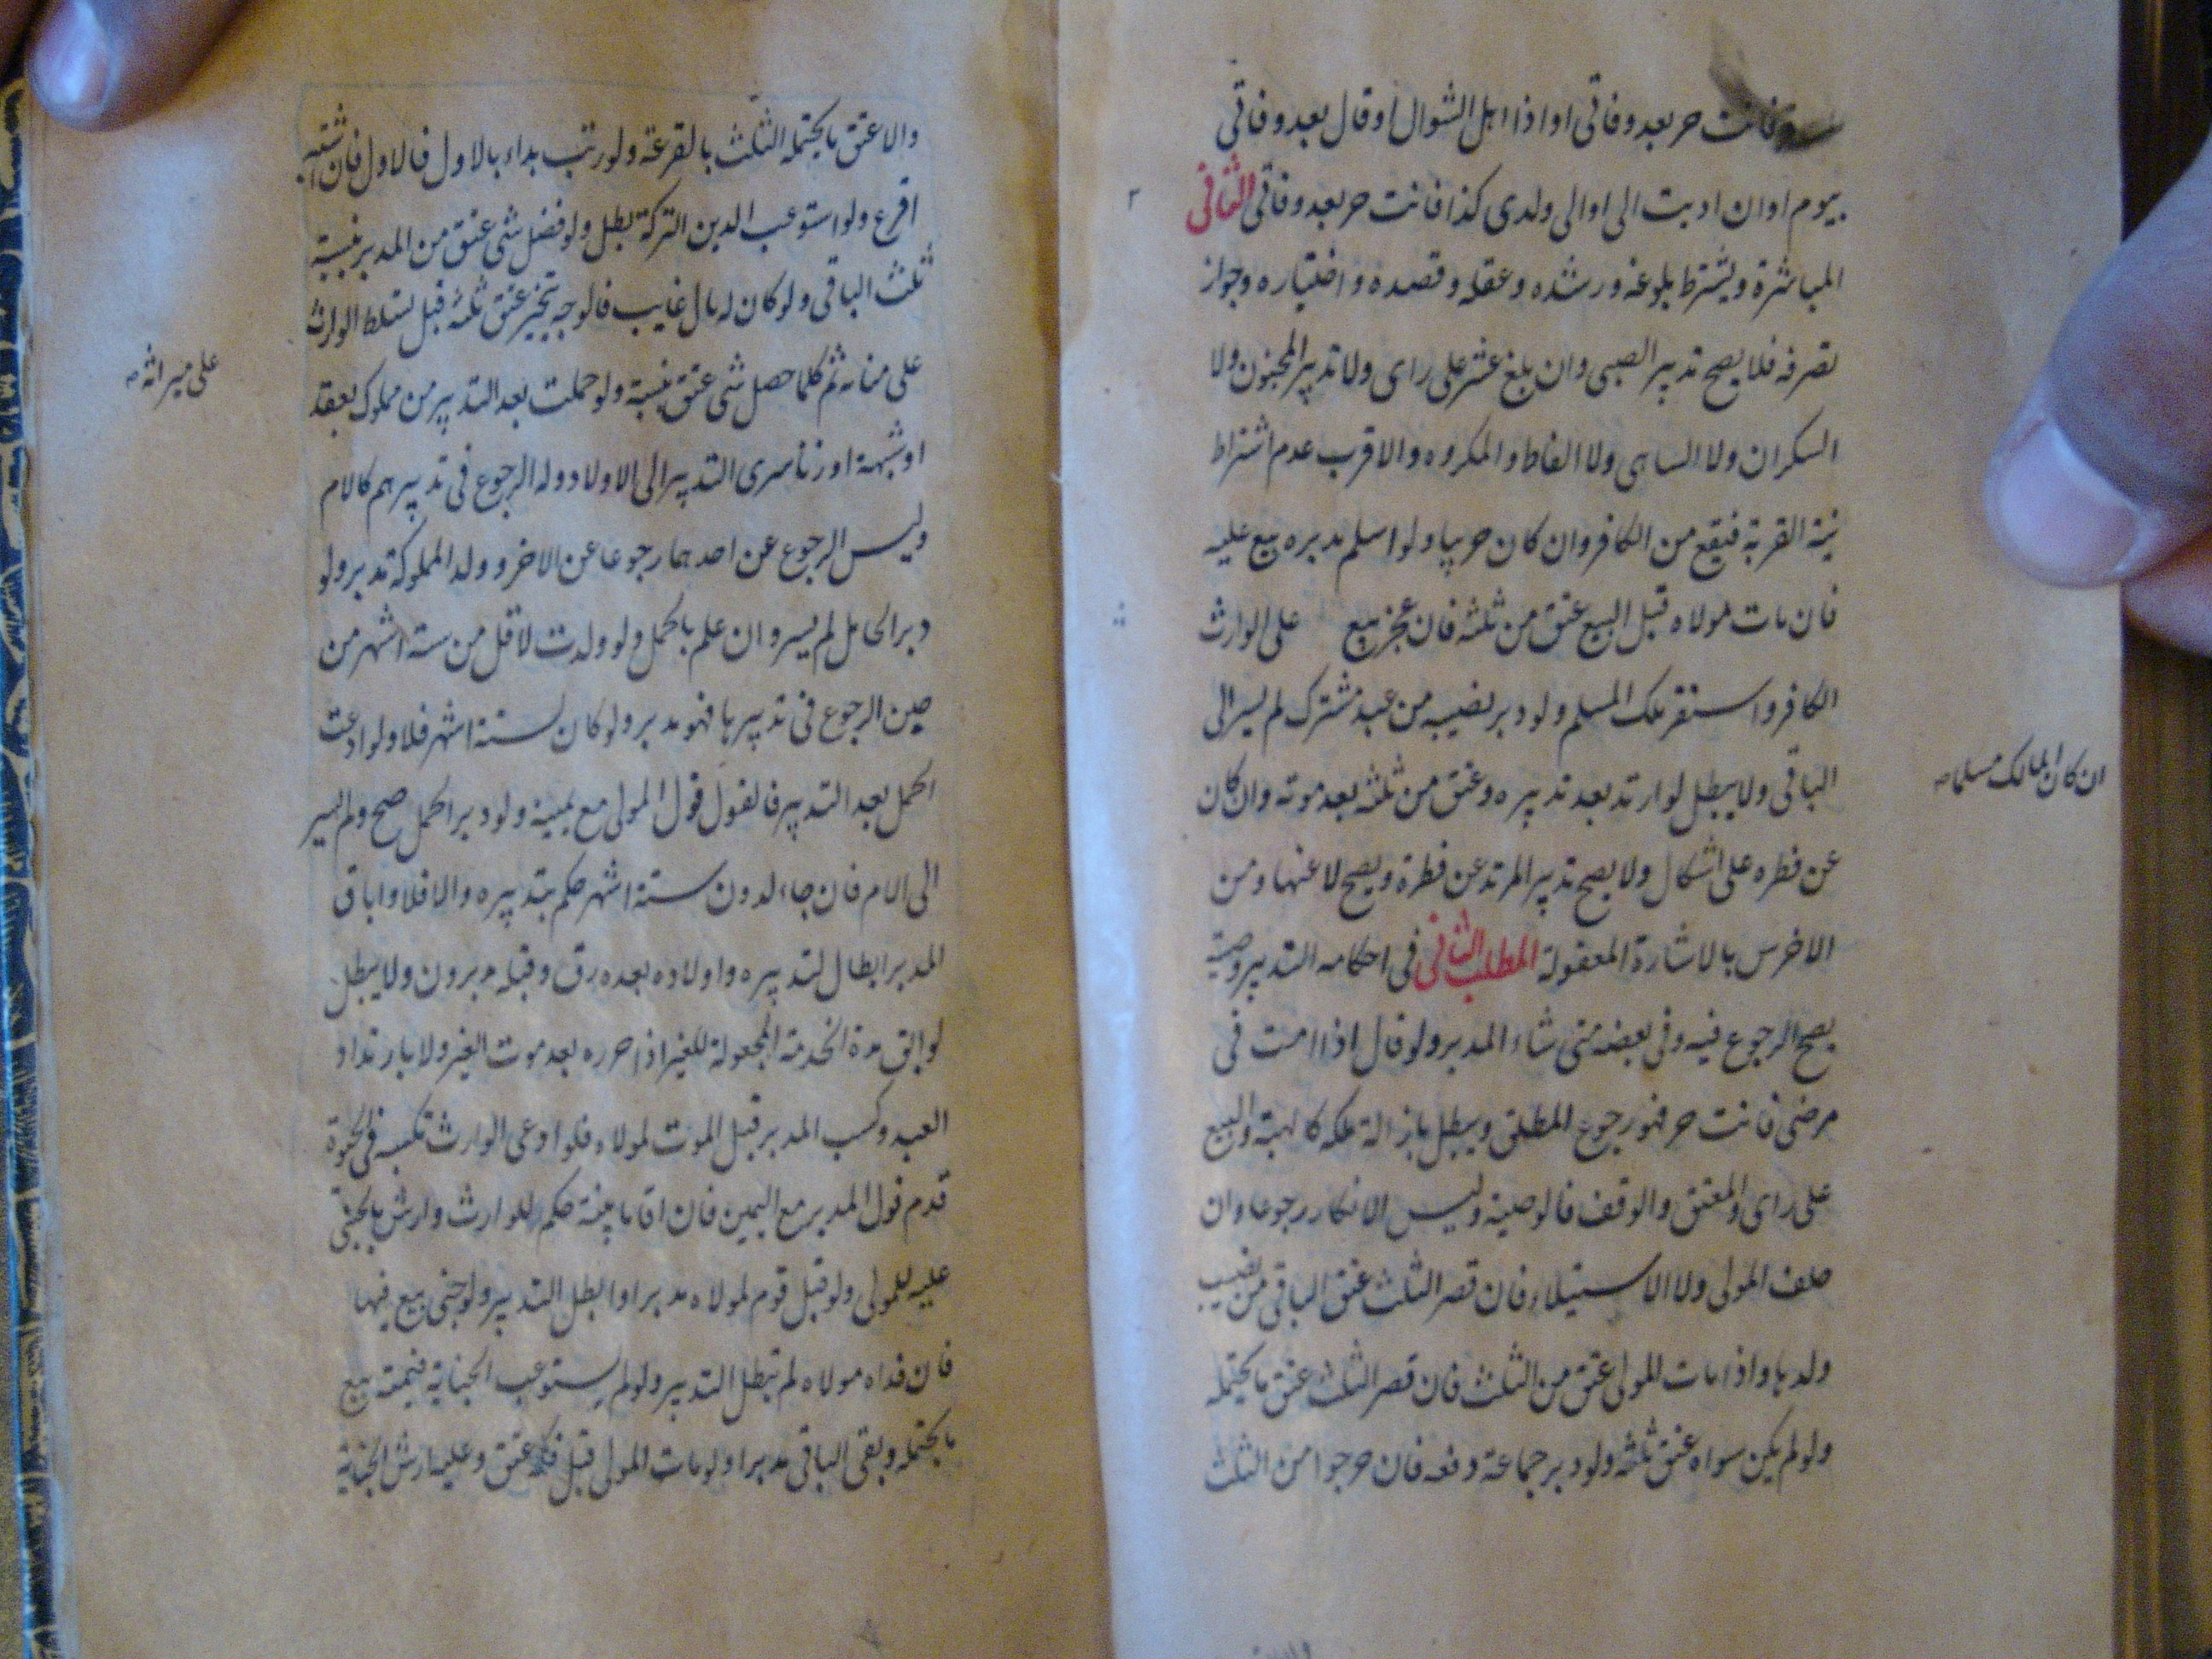 فانت حر بعد وفاتى او اذا اهل الشوال او قال بعد وفاتى
بيوم او ان اديت الى او الى ولدى كذا فانت حر بعد وفاتى الثانى
المباشرة ويشترط بلوغه ورشده وعقله وقصده واختياره وجواز
تصرفه فلا يصح تدبير الصبى وان بلغ عشر على راى ولا تدبير المجنون ولا
السكران ولا الساهى ولا الغالط والمكروه والاقرب عدم اشتراط
نية القربة فيقع من الكافر وان كان حربيا ولو اسلم مدبره بيع عليه
فان مات مولاه قبل البيع عتق من ثلثه فان عجز بيع على الوارث
الكافر واستقر ملك المسلم ولو دبر نصيبه من عبد مشترك لم يسر الى
ان كان المالك مسلما
الباقى ولا يبطل لو ارتد بعد تدبيره وعتق من ثلثه بعد موته وان كان
عن فطره على اشكال ولا يصح تدبير المرتد عن فطرة ويصح لا عنها ومن
الاخرس بالاشارة المعقولة المطلب الثانى فى احكامه التدبير وصية
يصح الرجوع فيه وفى بعضه متى شاء المدبر ولو قال اذا امت فى
مرضى فانت حر فهو رجوع المطلق ويبطل بازالة ملكه كالهبة والبيع
على راى والمعتق والوقف فالوصية وليس الانكار رجوعا وان
حلف المولى ولا الاستيلاء فان قصر الثلث عتق الباقى من نصيب
ولدها واذا مات المولى عتق من الثلث فان قصر الثلث عتق مايحتمله
ولو لم يكن سواه عتق ثلثه ولو دبر جماعة دفعه فان خرجوا من الثلث
والا عتق مايحتمله الثلث بالقرعة ولو رتب بداء بالاول فالاول فان اشتبه
اقرع ولو استوعب الدين التركة بطل ولو فضل شى عتق من المدبر بنسبة
ثلث الباقى ولو كان له مال غايب فالوجه تنجيز عتق ثلثه قبل تسلط الوارث
على ميراثه
على ثم كلما حصل شى عتق بنسبة ولو حملت بعد التدبير من مملوك بعقد
او شبهة او زنا سرى التدبير الى الاولاد وله الرجوع فى تدبيرهم كالام
وليس الرجوع عن احدهما رجوعا عن الاخر وولد المملوكة تدبر ولو
دبر الحامل لم يسر وان علم بالحمل ولو ولدت لاقل من ستة اشهر من
حين الرجوع فى تدبيرها فهو مدبر ولو كان لستة اشهر فلا ولو ادعت
الحمل بعد التدبير فالقول قول المولى مع يمينه ولو دبر الحمل صح ولم يسر
الى الام فان جاء لدون ستة اشهر حكم بتدبيره والا فلا واباق
المدبر ابطال لتدبيره واولاده بعده رق وقبله مدبرون ولا يبطل
لو ابق مدة الخدمة المجعولة للغير اذا حرره بعد موت الغير ولا بارتداد
العبد وكسب المدبر قبل الموت لمولاه فلو ادعى الوارث تكسبه فى الحيوة
قدم قول المدبر مع اليمين فان اقاما بينة حكم للوارث وارش مايجنى
عليه للمولى ولو قتل قوم لمولاه مدبرا وابطل التدبير ولو جنى بيع فيها
فان فداه مولاه لم تبطل التدبير ولو لم يستوعب الجناية قيمته بيع
مايحتمله وبقى الباقى مدبرا ولو مات المولى قبل فكه عتق وعليه ارش الجناية